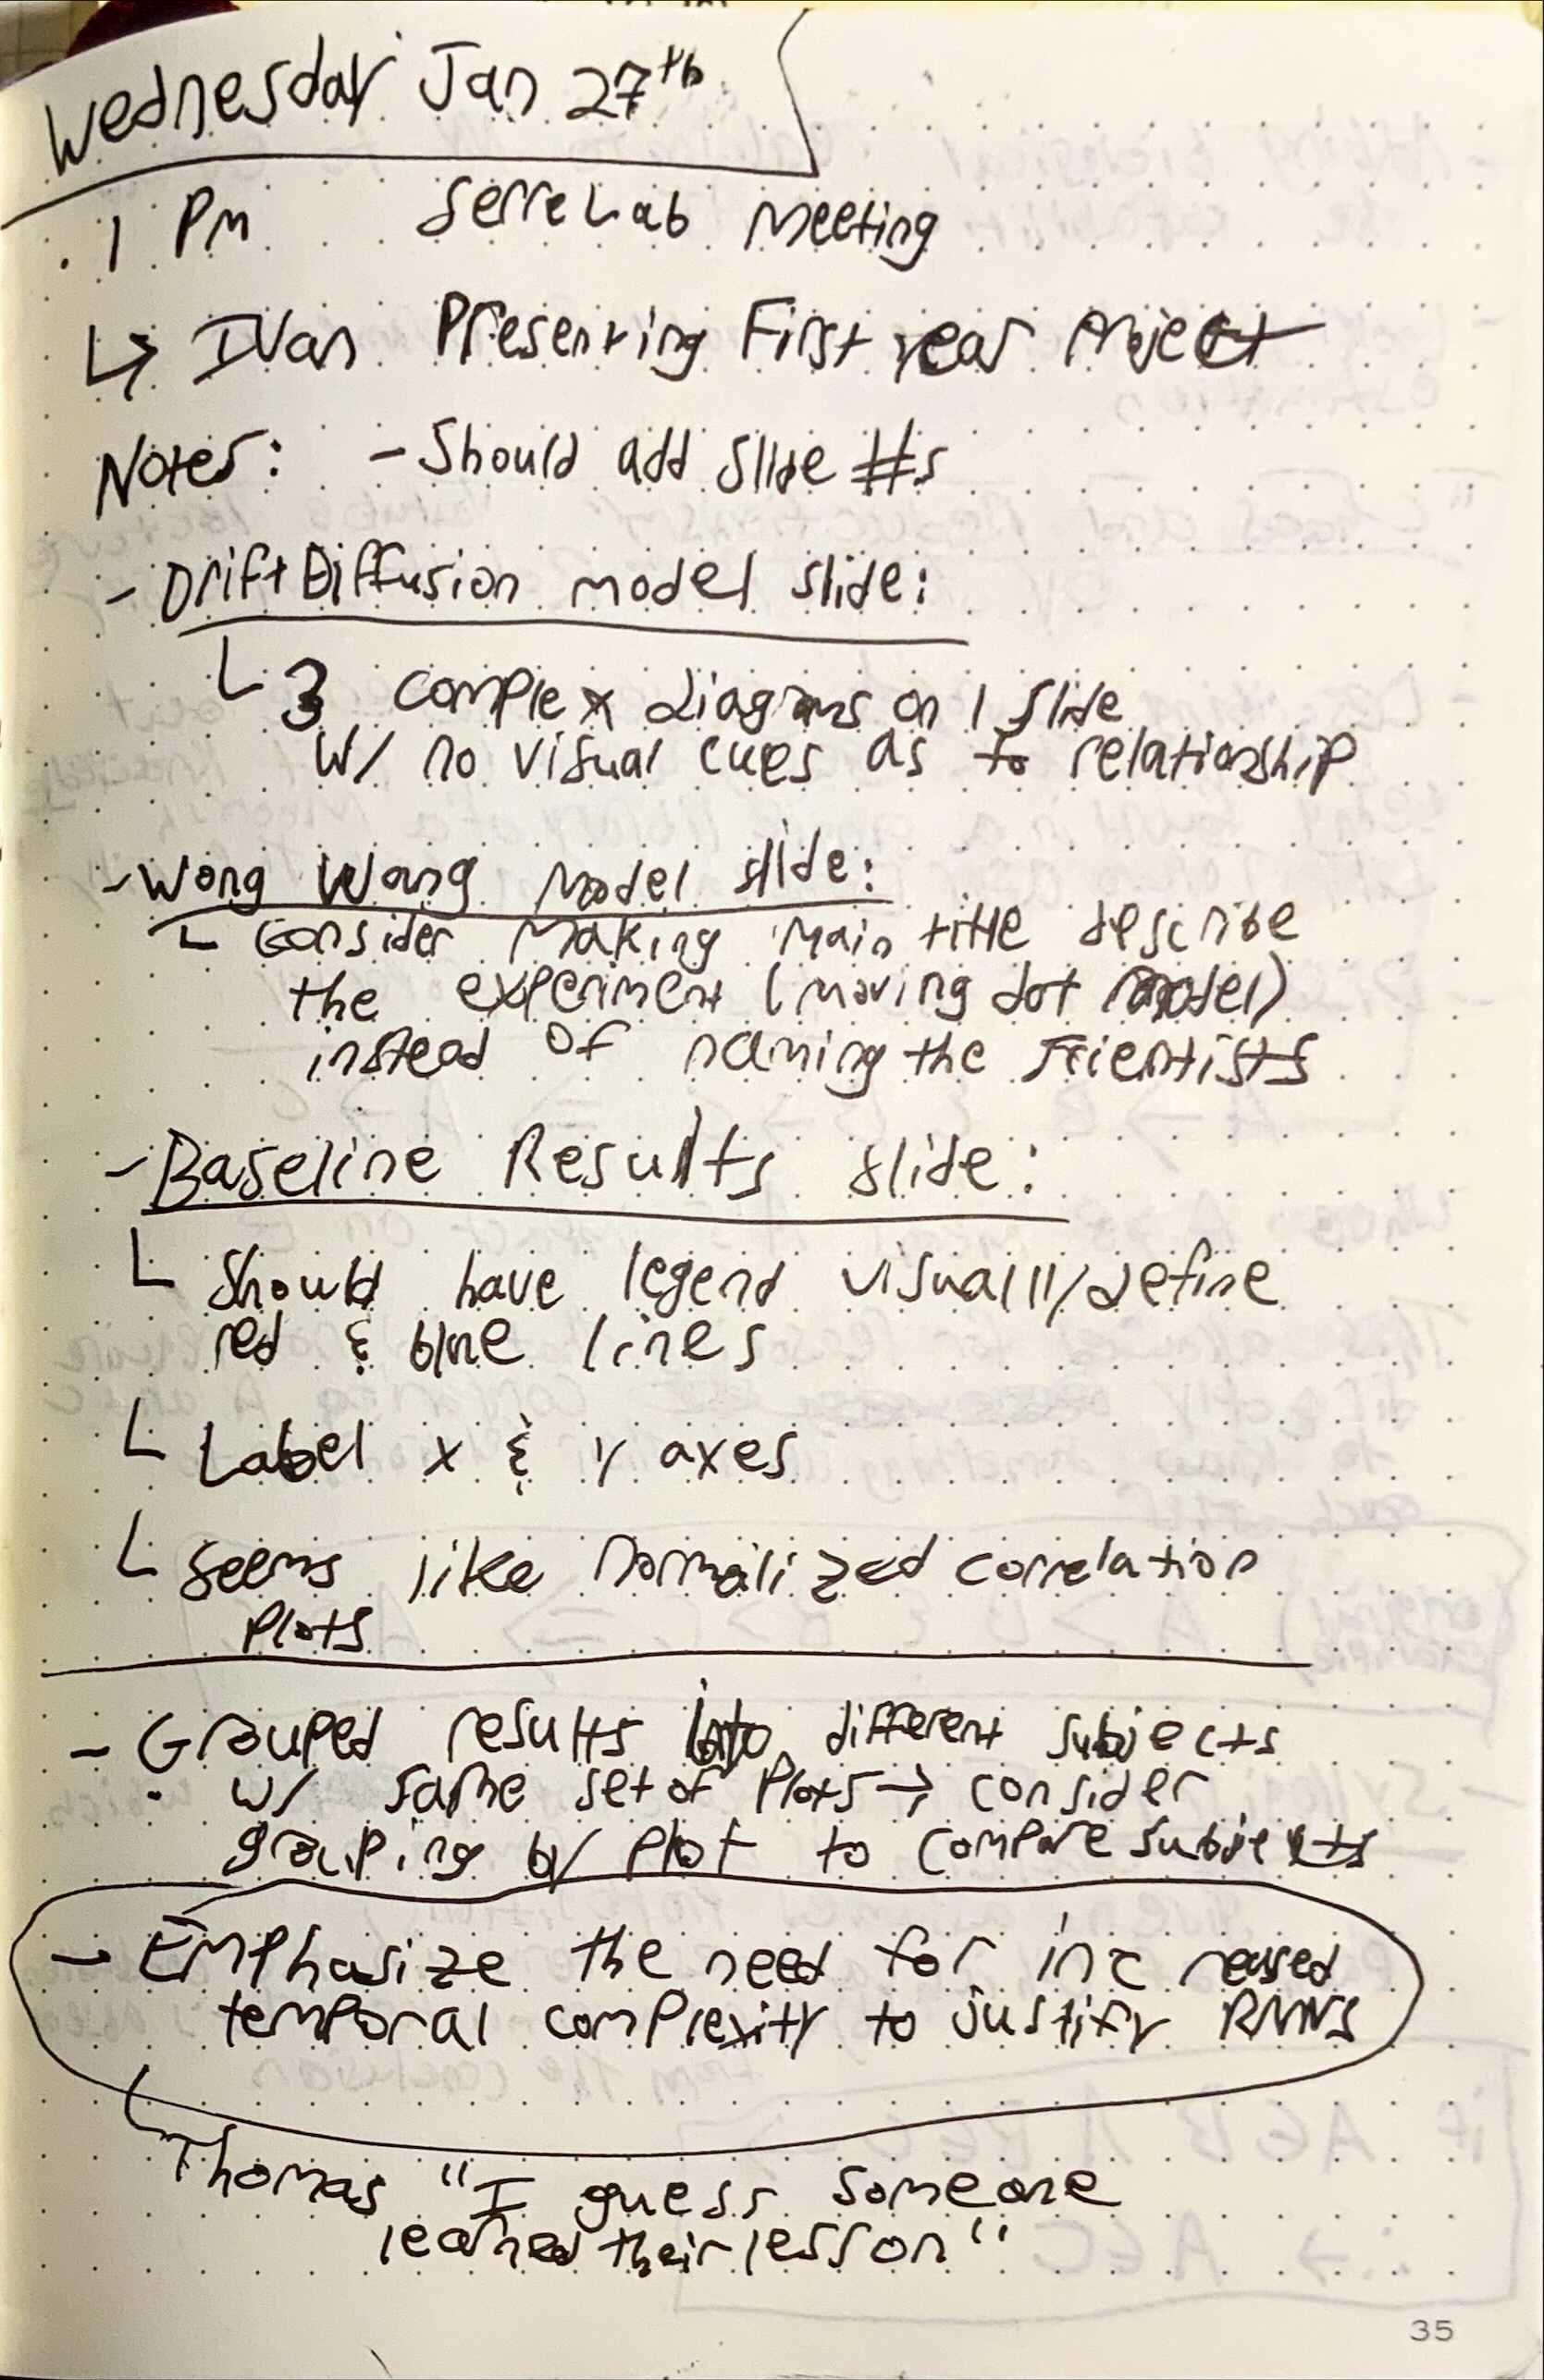 Wednesday Jan 27th
1 PM Serre Lab Meeting
↳ Ivan Presenting First year Project
Notes: - Should add slide #s
- Drift Diffusion model slide:
└ 3 complex diagrams on 1 slide
w/ no visual cues as to relationship
- Wong Wang Model slide:
└ Consider making main title describe
the experiment (moving dot model)
instead of naming the scientists
- Baseline Results slide:
└ Should have legend visually define
red & blue lines
└ Label x & y axes
└ seems like normalized correlation
Plots
- Grouped results into different subjects
w/ same set of Plots → consider
grouping by plot to compare subjects
- Emphasize the need for increased
temporal complexity to justify RNNs
└ Thomas "I guess someone
learned their lesson"
35